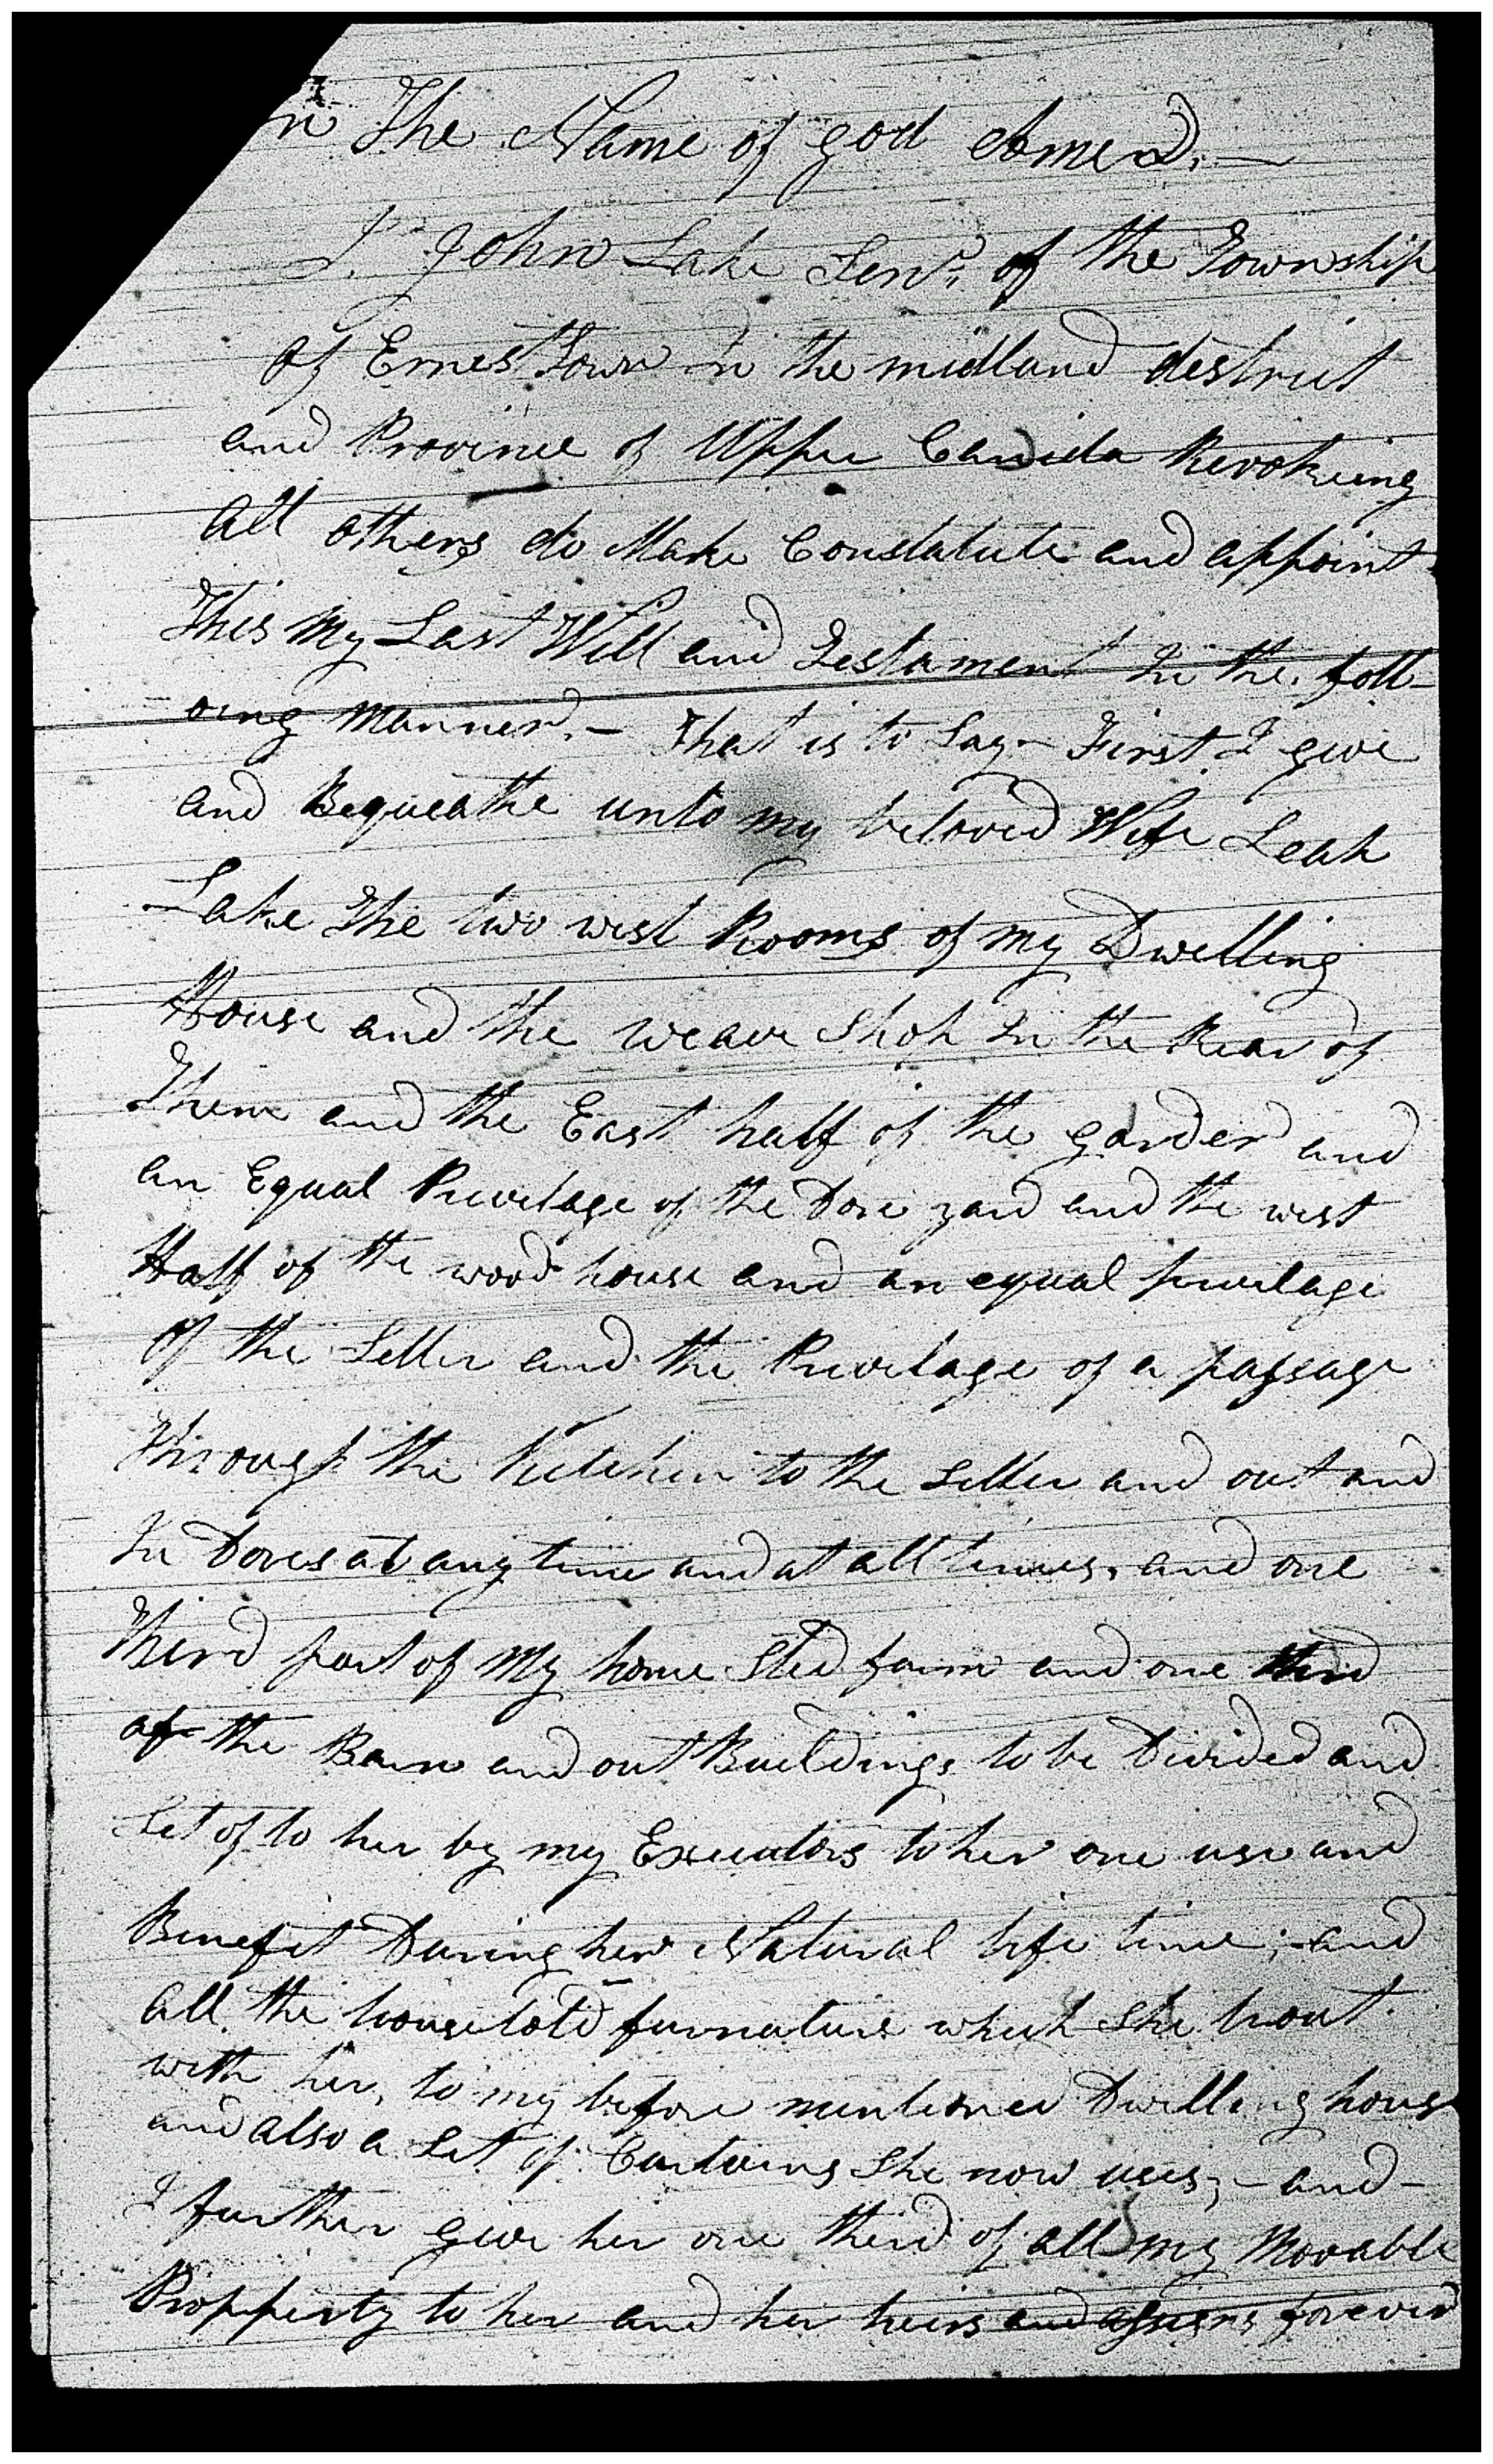 n The Name of god Amen.—
I. John Lake Senr. of the Township
of Ernes Town in the midland destrict
and Province of Upper Canida Revokeing
All others do Make Constatute and appoint
This my Last Will and Testament In the foll-
oing manner.— That is to Say— First I give
and Bequeathe unto my beloved Wife Leah
Lake The two west Rooms of my Dwelling
House and the weave Shop In the Rear of
Them and the East half of the garden and
an Equal Privilage of the Dore yard and the west
Half of the wood house and an equal privilage
Of the Seller and the Privilage of a passage
Through the Kitchen to the Seller and out and
In Dores at any time and at all times, and one
Third part of my home Sted farm and one third
of the Barn and out Buildings to be Divided and
Set of to her by my Executors to her one use and
Benefit During her Natural life time;—and
all the household furnature which She brout
with her, to my before mentioned Dwelling house
and also a Set of Curtains She now uses;—and—
I further give her one third of all my Movable
Propperty to her and her heirs and assigns forever